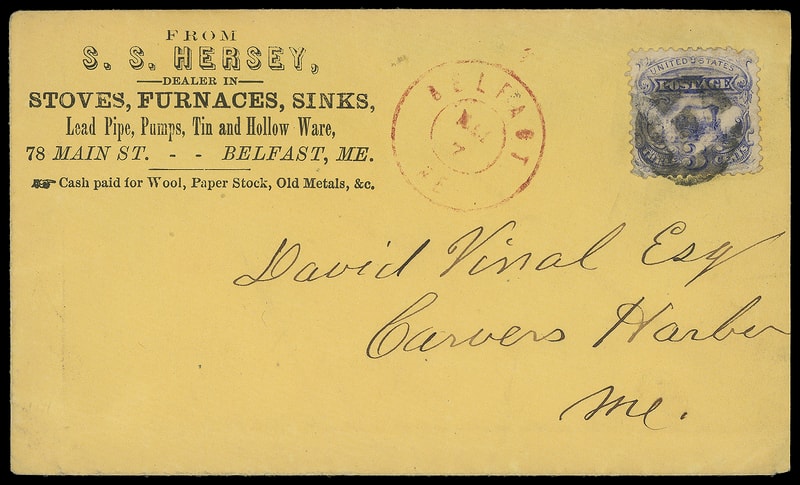 FROM
S. S. HERSEY,
DEALER IN
STOVES, FURNACES, SINKS,
Lead Pipe, Pumps, Tin and Hollow Ware,
78 MAIN ST. - - BELFAST, ME.
☛ Cash paid for Wool, Paper Stock, Old Metals, &c.
BELFAST
7
ME
UNITED STATES
POSTAGE
3
CENTS
David Vinal Esq
Carvers Harbor
Me.